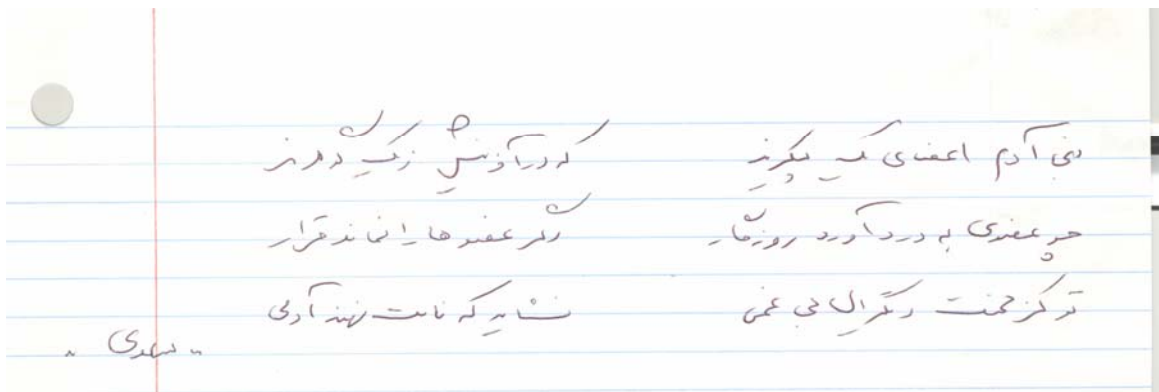 بنی آدم اعضای یک پیکرند که در آفرینش ز یک گوهرند
چو عضوی به درد آورد روزگار دگر عضوها را نماند قرار
تو کز محنت دیگران بی غمی نشاید که نامت نهند آدمی
"سعدی"